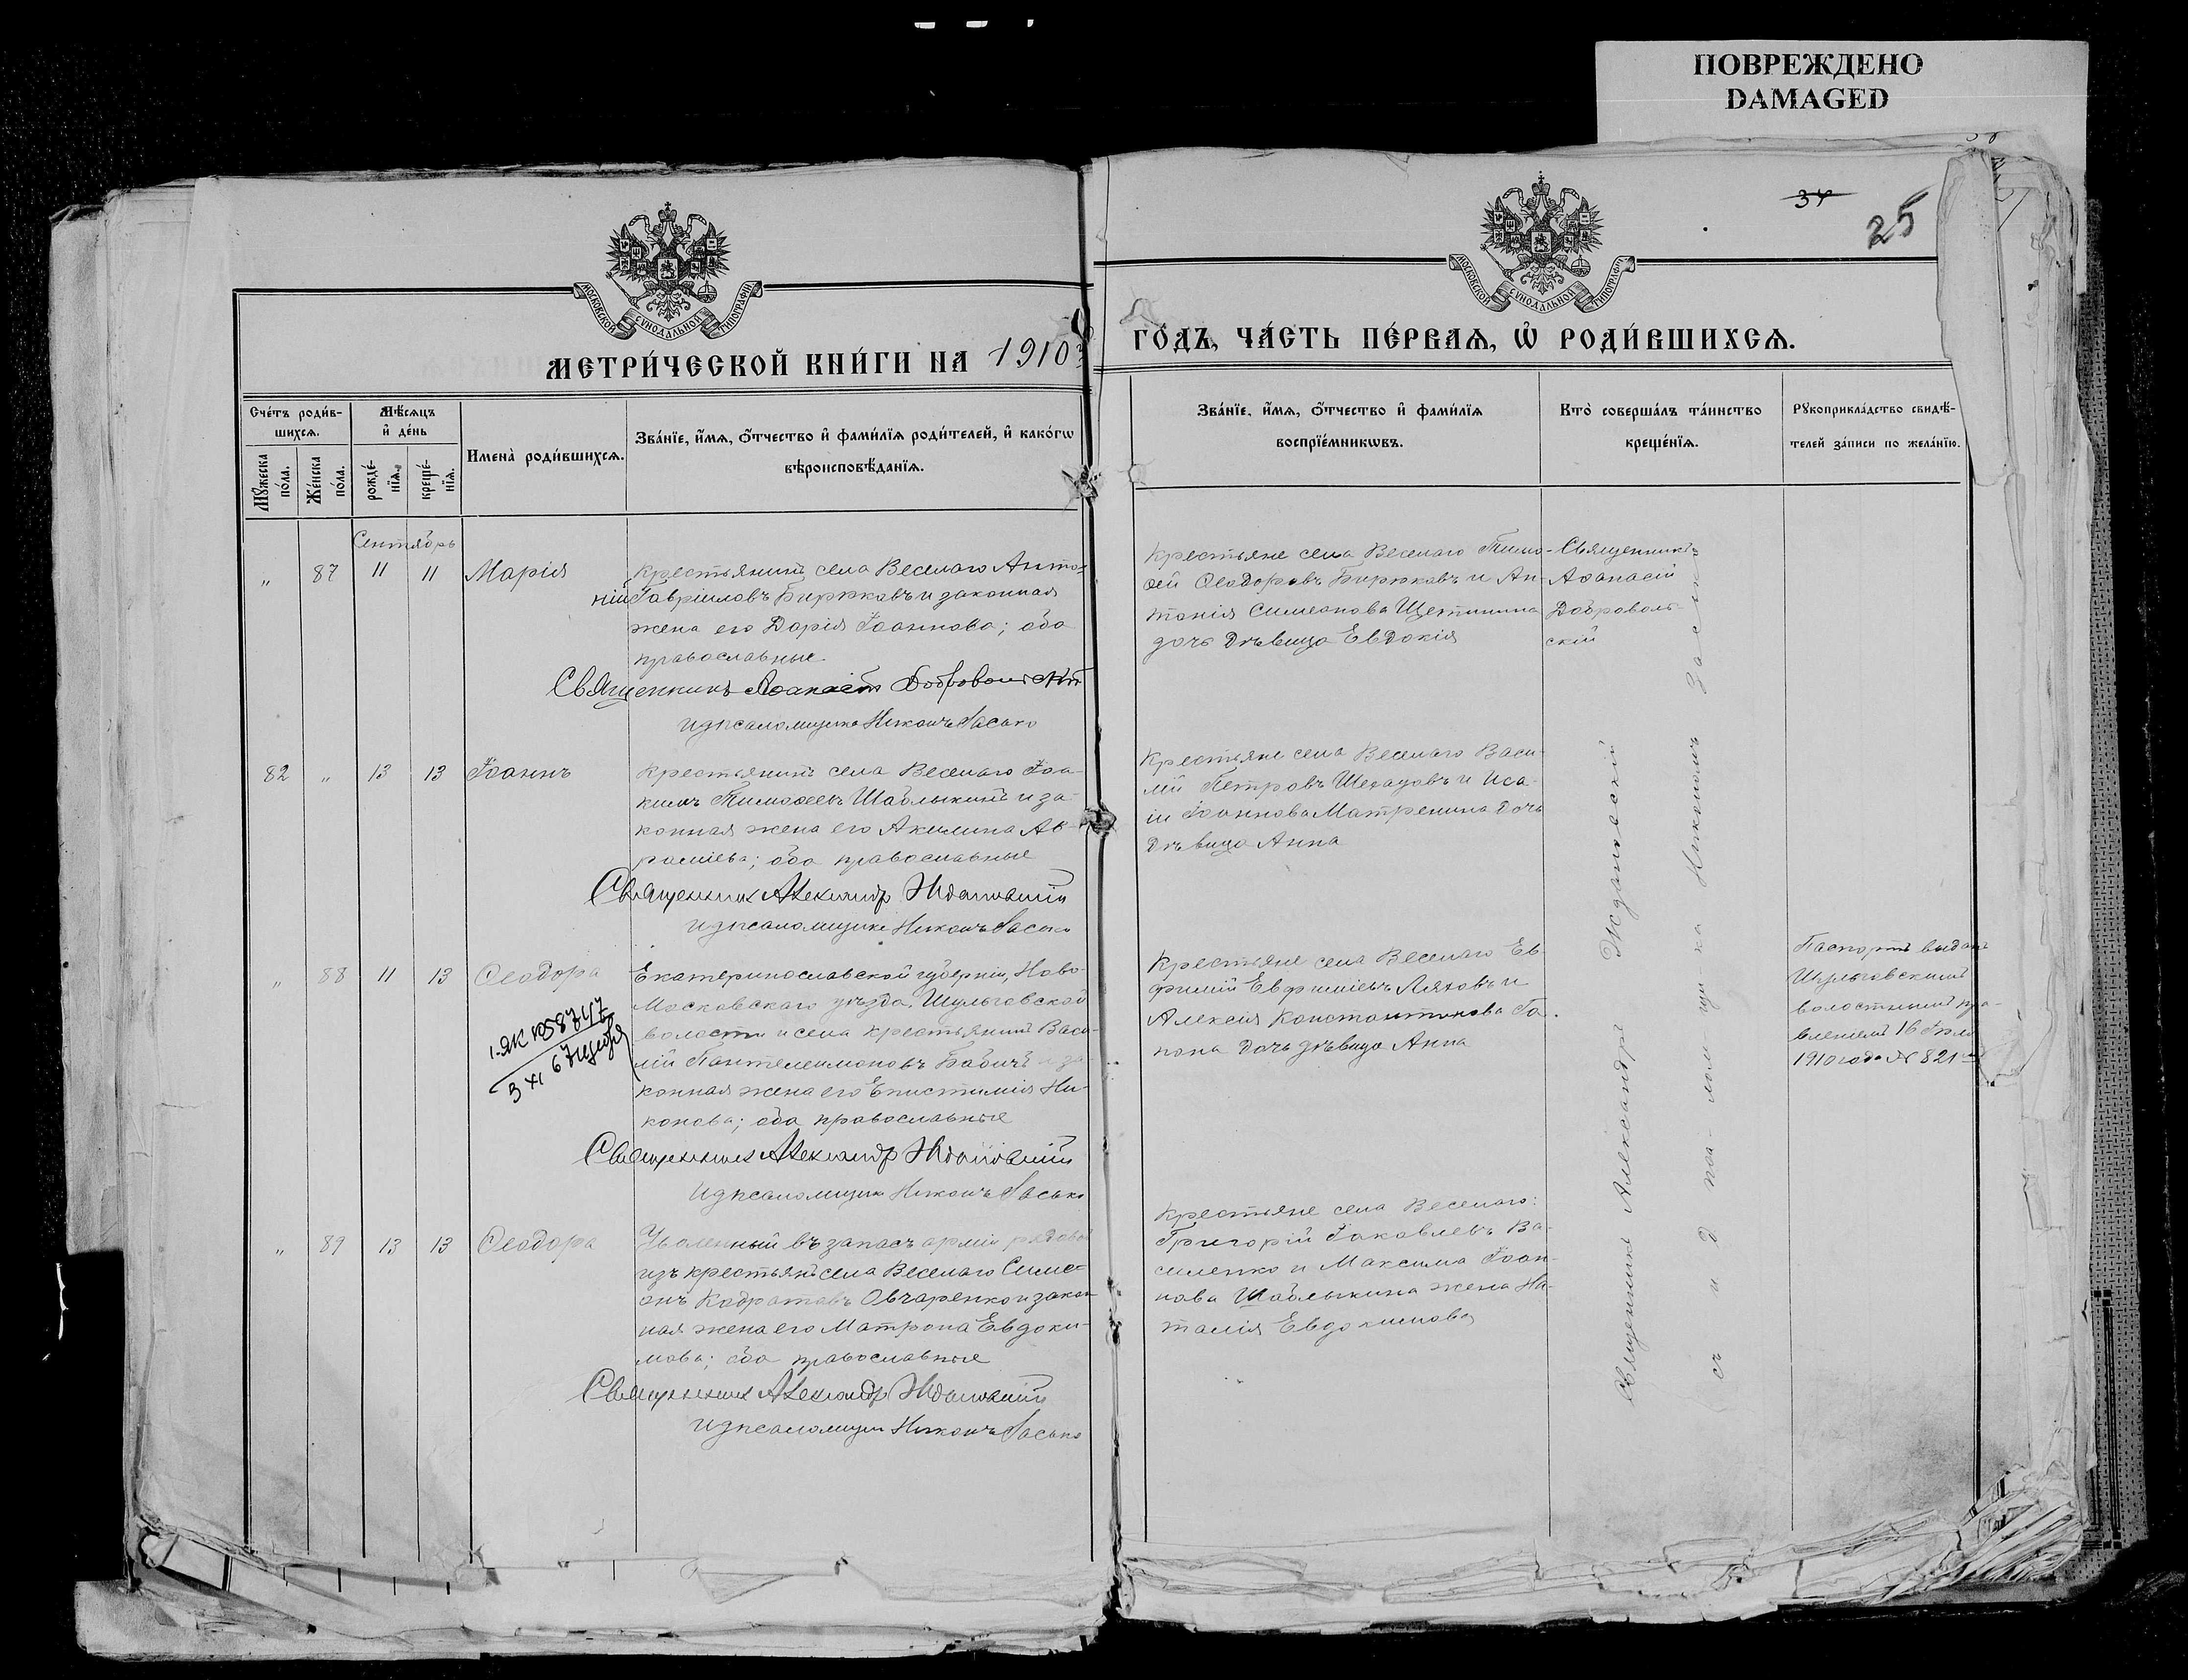 ПОВРЕЖДЕНО
DAMAGED
34
25
МОСКОВСКОЙ СѴНОДАЛЬНОЙ ТИПОГРАФІИ
МОСКОВСКОЙ СѴНОДАЛЬНОЙ ТИПОГРАФІИ
МЕТРИ́ЧЕСКОЙ КНИ́ГИ НА 1910
ГО́ДЪ, ЧА́СТЬ ПЕ́РВАѦ, Ѡ҆ РОДИ́ВШИХСѦ.
Сче́тъ роди́в-
шихсѧ.
Мꙋ́жеска
по́ла.
Же́нска
по́ла.
Мѣ́сѧцъ
и҆ де́нь
рожде́-
нїѧ.
креще́-
нїѧ.
Имена̀ роди́вшихсѧ.
Зва́нїе, и҆́мѧ, ѻ҆́тчество и҆ фами́лїѧ роди́телей, и҆ како́гѡ
вѣроисповѣ́данїѧ.
Зва́нїе, и҆́мѧ, ѻ҆́тчество и҆ фами́лїѧ
воспрїе́мникѡвъ.
Кто̀ соверша́лъ та́инство
креще́нїѧ.
Рꙋкоприкла́дство свидѣ́-
телей за́писи по жела́нїю.
Сентябрь
„ 87 11 11 Марія
Крестьянинъ села Веселаго Анто-
ній Гавріиловъ Бирюковъ и законная
жена его Дарія Іоаннова; оба
православные
Священникъ Аѳанасій Добровольскій
и д псаломщика Никонъ Засько
Крестьяне села Веселаго Тимо-
ѳей Ѳеодоровъ Бирюковъ и Ан-
тонія Симеонова Щетинина
дочь дѣвица Евдокія
Священникъ
Аѳанасій
Добровол-
скій
82 „ 13 13 Іоаннъ
Крестьянинъ села Веселаго Іоа-
кимъ Тимоѳеевъ Шаблыкинъ и за-
конная жена его Акилина Ав-
раміева; оба православные
Священник Александр Ждановскій
и д псаломщика Никонъ Засько
Крестьяне села Веселаго Васи-
лій Петровъ и Иса-
іи Іоаннова Матренина дочь
дѣвица Анна
„ 88 11 13 Ѳеодора
I-ЯК №058747
Екатеринославской губерніи, Ново-
московскаго уѣзда, Шульговской
волости и села крестьянинъ Васи-
лій Пантелеимоновъ Бабичъ и за-
конная жена его Епистимія Ни-
конова; оба православные
Священник Александр Ждановскій
и д псаломщика Никонъ Засько
Крестьяне села Веселаго Ев-
фимій Евфиміевъ Ляховъ и
Алексія Константинова Га-
пона дочь дѣвица Анна
Паспортъ выданъ
Шульговскимъ
волостнымъ пра-
вленіемъ 16
1910 года № 821
„ 89 13 13 Ѳеодора
Уволенный въ запасъ арміи рядовой
изъ крестьянъ села Веселаго Симе-
онъ Кодратовъ Овчаренко и закон-
ная жена его Матрона Евдоки-
мова; оба православные
Священник Александр Ждановскій
и д псаломщика Никонъ Засько
Крестьяне села Веселаго:
Григорій Іаковлевъ Ва-
силенко и Максима Іоан-
нова Шаблыкина жена На-
талія Евдокимова
Священникъ Александръ Ждановскій
съ и д псаломщика Никономъ Засько